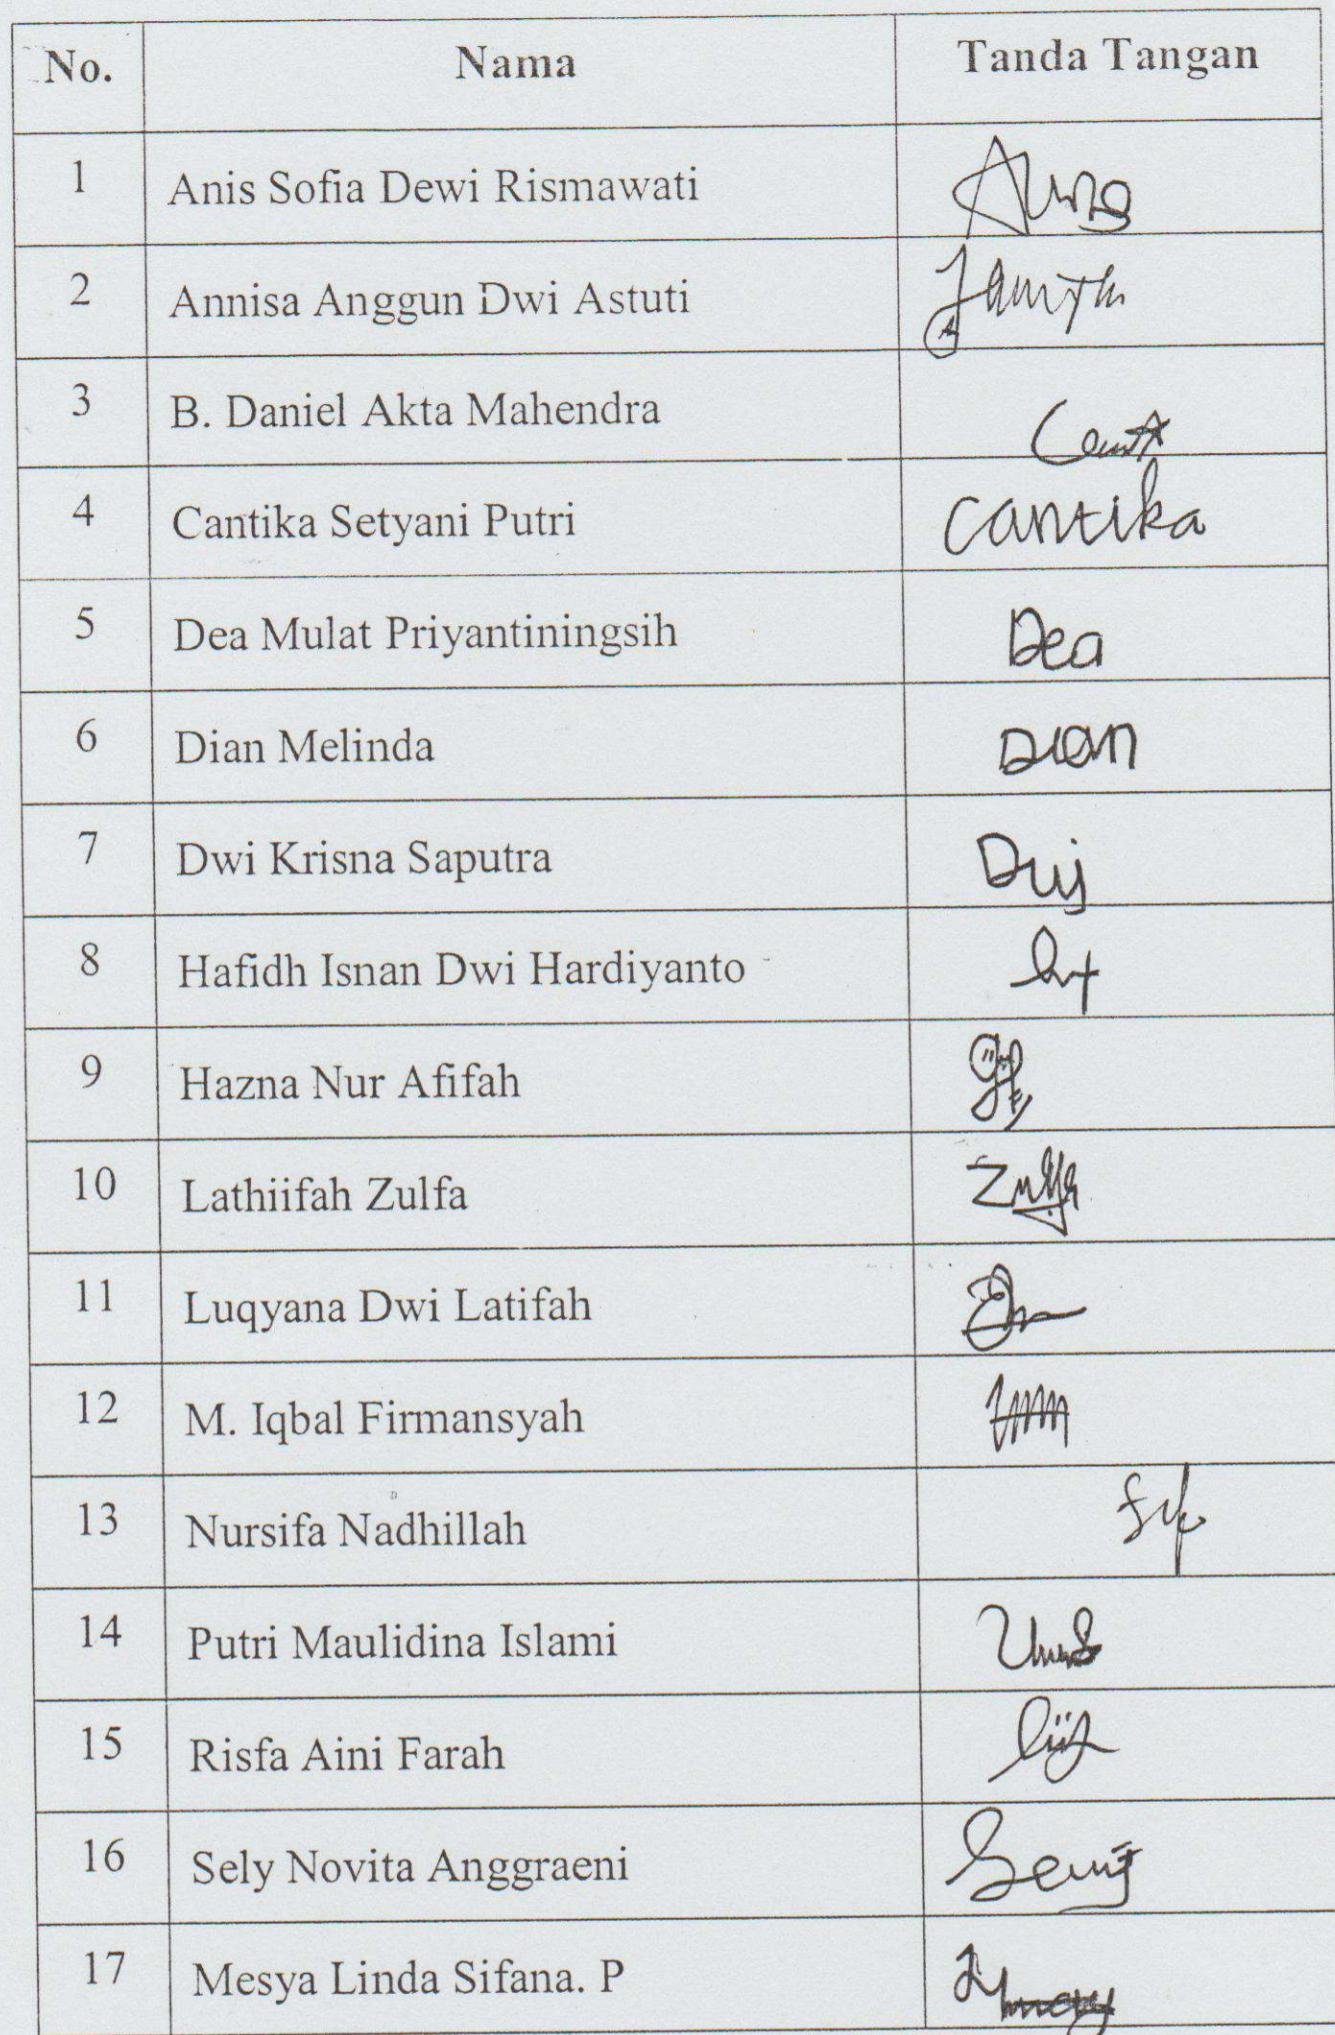 No. Nama Tanda Tangan
1 Anis Sofia Dewi Rismawati
2 Annisa Anggun Dwi Astuti
3 B. Daniel Akta Mahendra
4 Cantika Setyani Putri Cantika
5 Dea Mulat Priyantiningsih Dea
6 Dian Melinda Dian
7 Dwi Krisna Saputra
8 Hafidh Isnan Dwi Hardiyanto
9 Hazna Nur Afifah
10 Lathiifah Zulfa
11 Luqyana Dwi Latifah
12 M. Iqbal Firmansyah
13 Nursifa Nadhillah
14 Putri Maulidina Islami
15 Risfa Aini Farah
16 Sely Novita Anggraeni
17 Mesya Linda Sifana. P